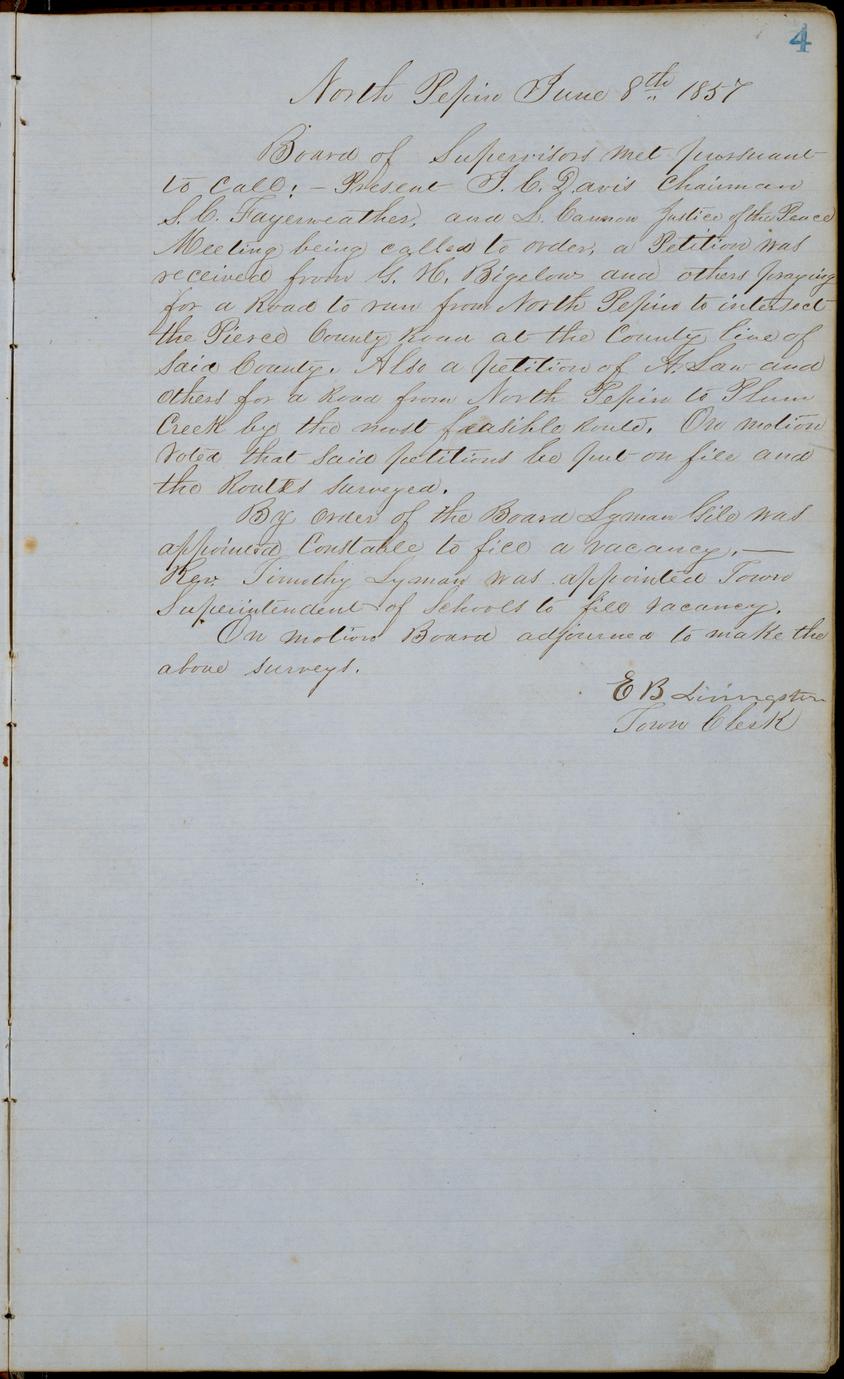 4
North Pepin June 8th 1857
Board of Supervisors met pursuant
to call: - Present J. C. Davis Chairman
S. C. Fayerweather, and L. Cannon Justice of the Peace
Meeting being called to order, a Petition was
received from G. H. Bigelow and others praying
for a Road to run from North Pepin to intersect
the Pierce County Road at the County line of
said County. Also a petition of A. Law and
others for a Road from North Pepin to Plum
Creek by the most feasible Route. On motion
voted that said petitions be put on file and
the Routes surveyed.
By order of the Board Lyman Gile was
appointed Constable to fill a vacancy. —
Rev. Timothy Lyman was appointed Town
Superintendent of Schools to fill vacancy.
On motion Board adjourned to make the
above surveys.
E B Livingston
Town Clerk